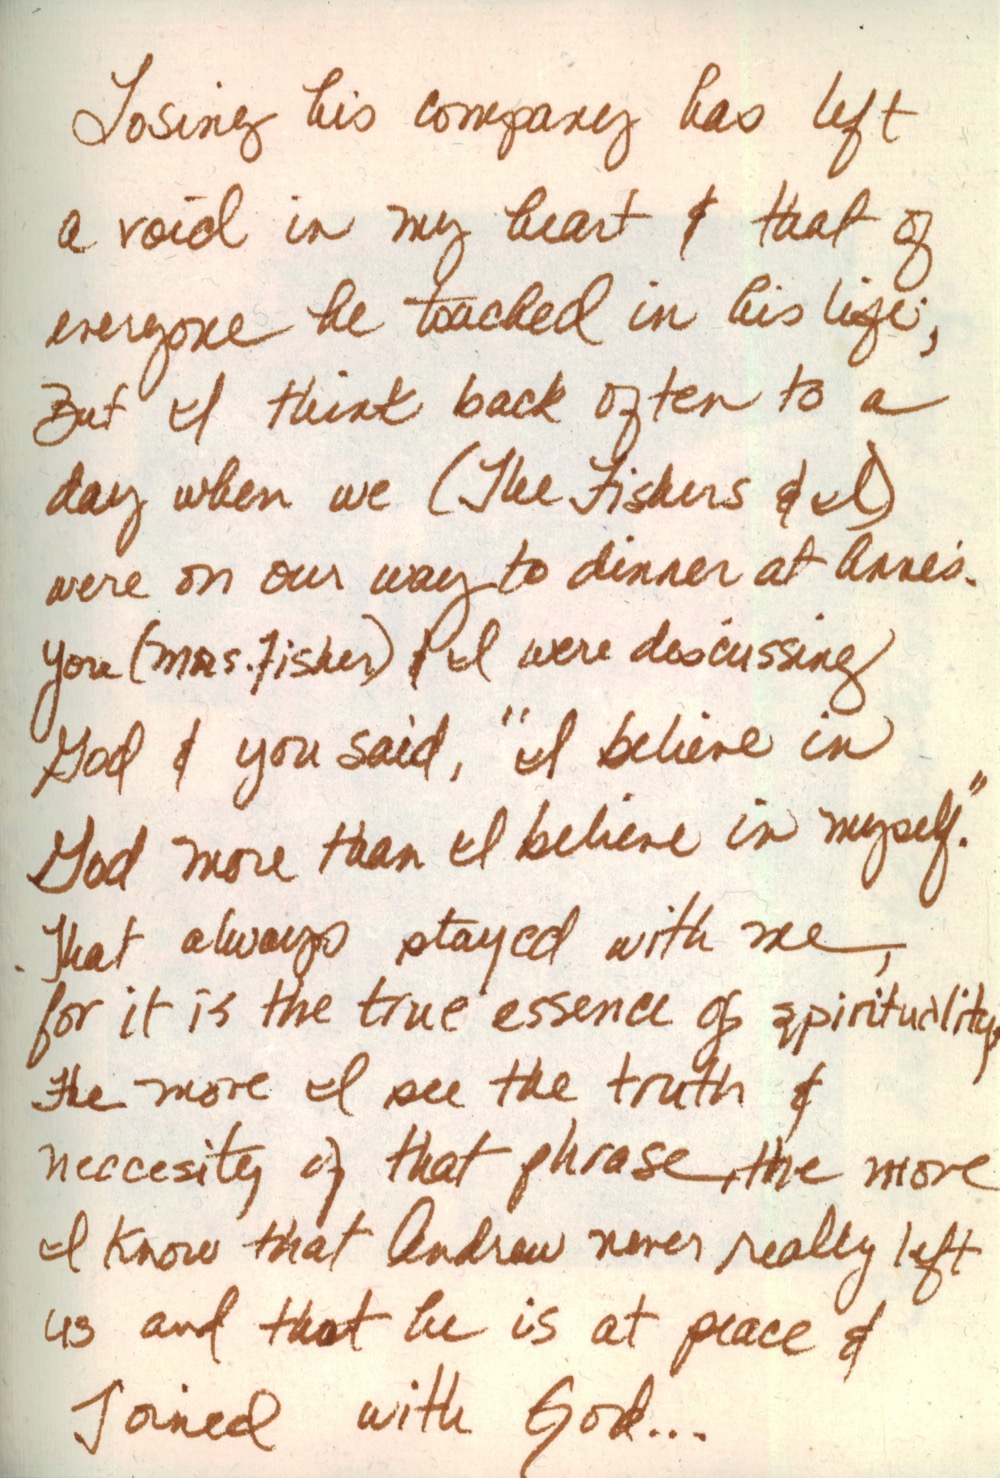 Losing his company has left
a void in my heart & that of
everyone he touched in his life;
But I think back often to a
day when we (The Fishers & I)
were on our way to dinner at Anne's.
You (Mrs. Fisher) & I were discussing
God & you said, "I believe in
God more than I believe in myself."
That always stayed with me,
for it is the true essence of spirituality
The more I see the truth &
neccesity of that phrase, the more
I know that Andrew never really left
us and that he is at peace &
Joined with God...